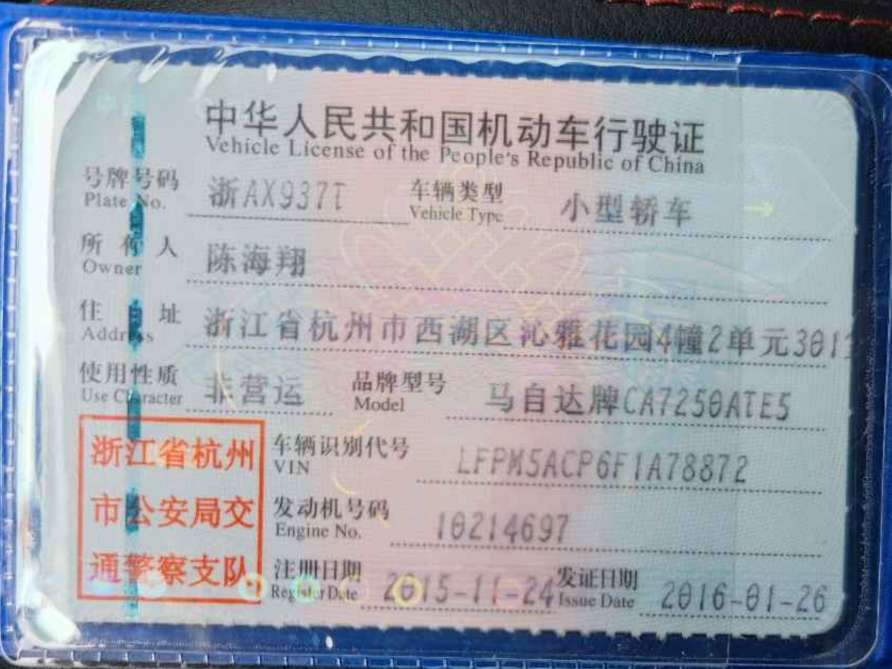 中华人民共和国机动车行驶证
Vehicle License of the People's Republic of China
号牌号码 浙AX937T 车辆类型 小型轿车
Plate No. Vehicle Type
所有人 陈海翔
Owner
住址 浙江省杭州市西湖区沁雅花园4幢2单元301
Address
使用性质 非营运 品牌型号 马自达牌CA7250ATE5
Use Character Model
浙江省杭州 车辆识别代号 LFPM5ACP6F1A78872
VIN
市公安局交 发动机号码 10214697
Engine No.
通警察支队 注册日期 2015-11-24 发证日期 2016-01-26
Register Date Issue Date